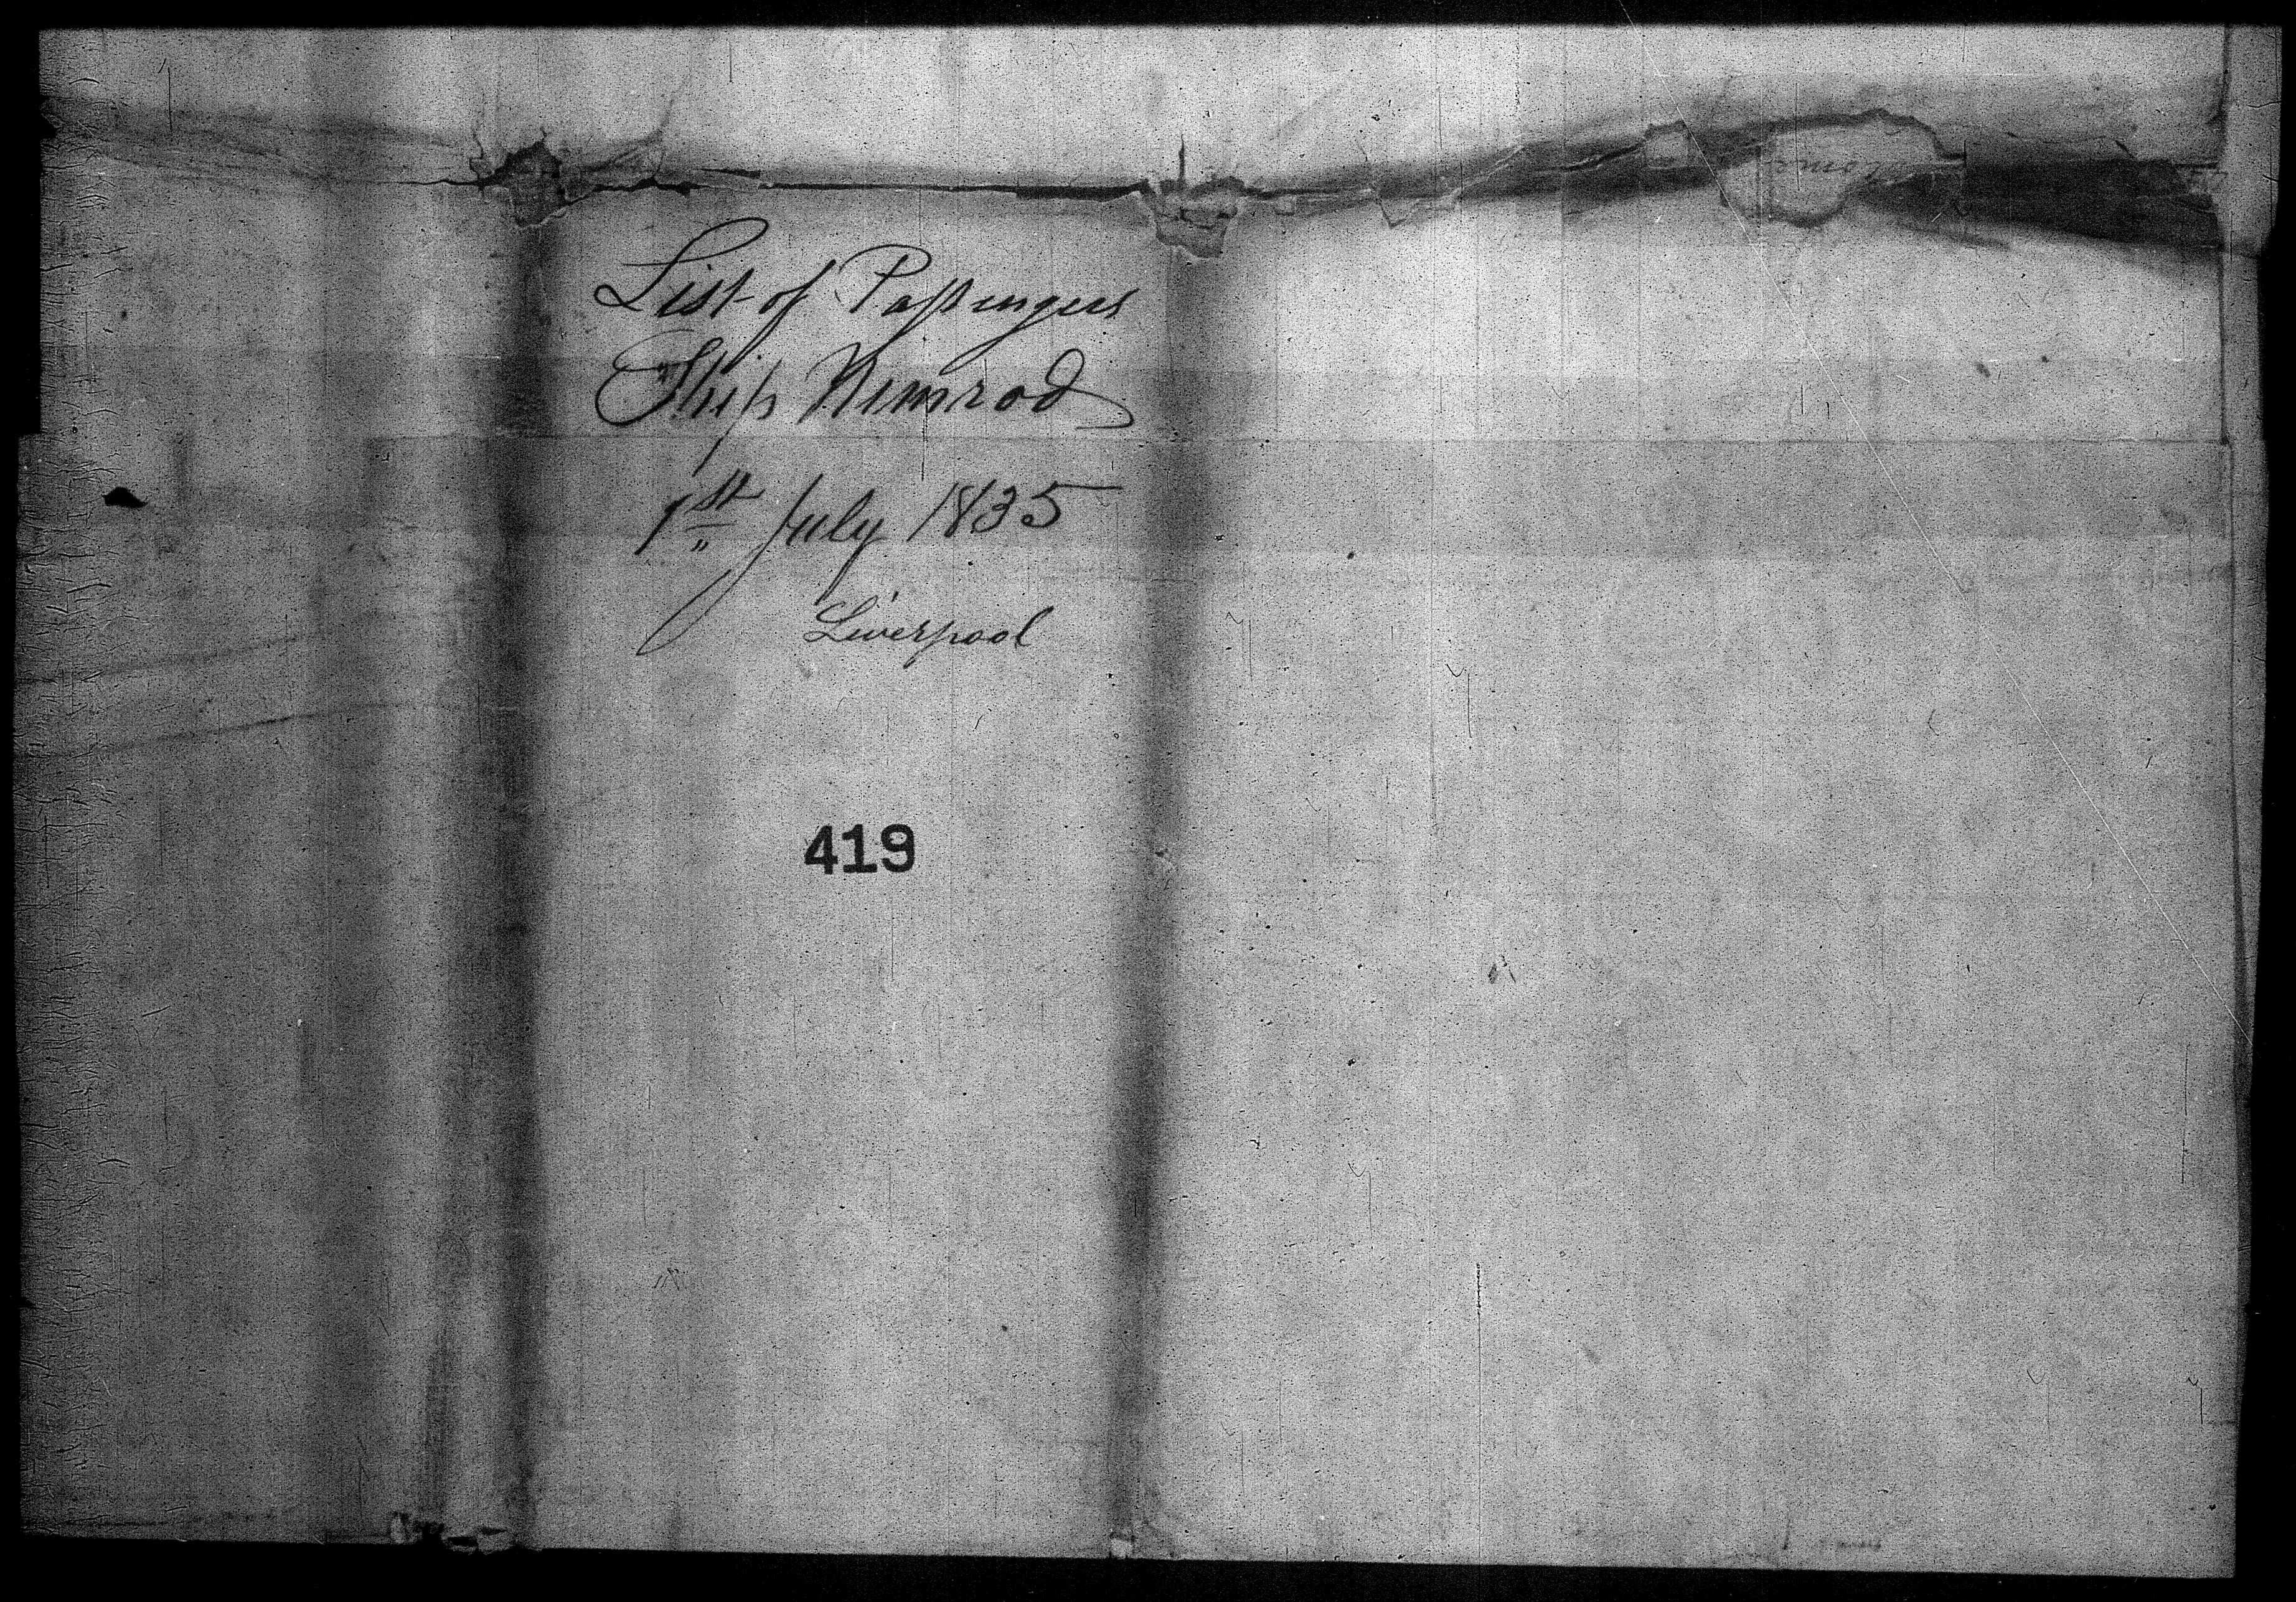 List of Passengers
Ship Nimrod
1st July 1835
Liverpool
419